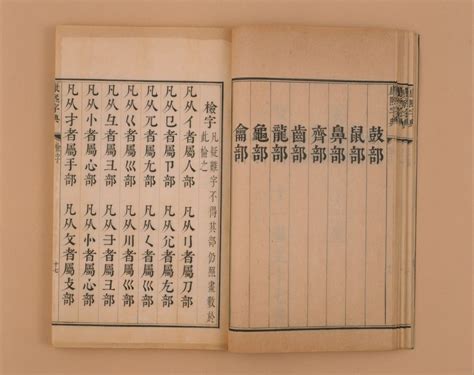 鼓部
鼠部
鼻部
齊部
齒部
龍部
龜部
龠部
檢字
凡疑難字不得其部仍照畫數於
此檢之
凡从亻者屬人部 凡从刂者屬刀部
凡从㔾者屬卩部 凡从尣者屬尢部
凡从兀者屬尢部 凡从𡿨者屬巛部
凡从巜者屬巛部 凡从川者屬巛部
凡从彑者屬彐部 凡从⺕者屬彐部
凡从忄者屬心部 凡从㣺者屬心部
凡从扌者屬手部 凡从攵者屬攴部
康熙字典 檢字